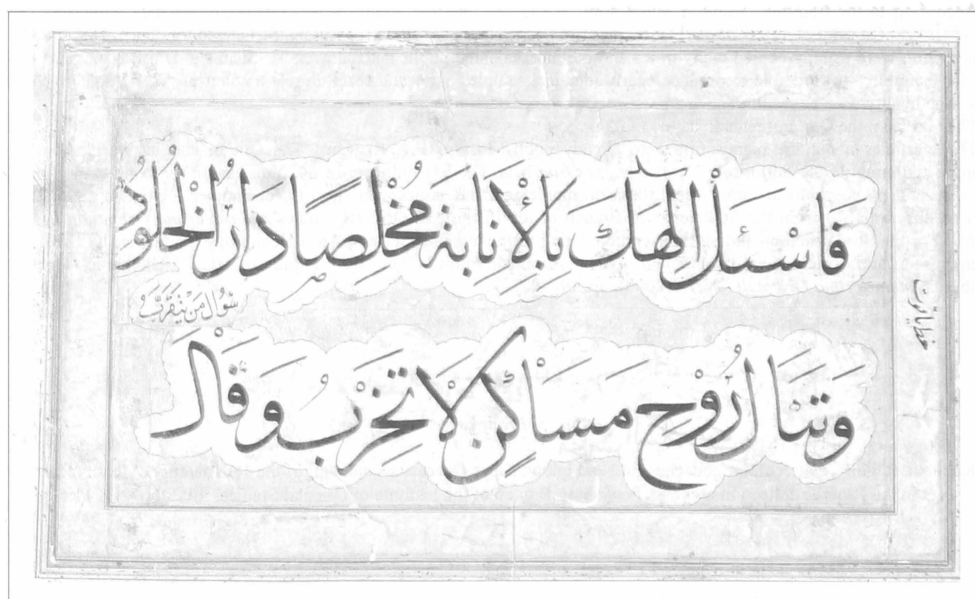 فَاسْئَلْ اِلٰهَكَ بِالْاِنَابَةِ مُخْلِصًا دَارَ الْخُلُودِ
سُؤَالَ مَنْ يَتَقَرَّبُ
وَتَنَالُ رُوْحَ مَسَاكِنَ لَا تَخْرَبُ وَقَالَ
خط ياقوت